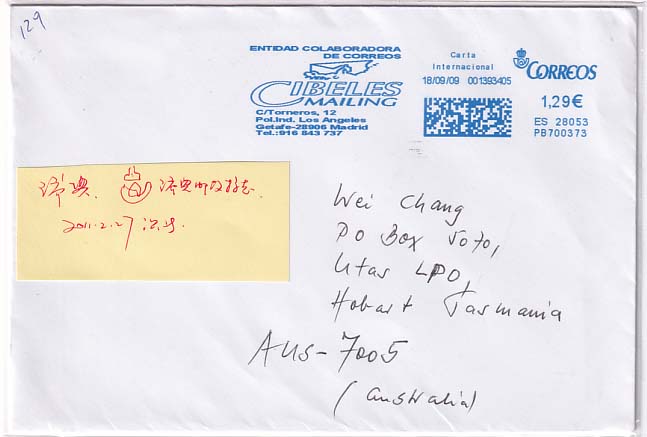 129
ENTIDAD COLABORADORA
DE CORREOS
CIBELES
MAILING
C/Torneros, 12
Pol.Ind. Los Angeles
Getafe-28906 Madrid
Tel.:916 843 737
Carta
Internacional
18/09/09 001393405
CORREOS
1,29€
ES 28053
PB700373
2011.2.27
Wei Chang
PO Box 5070,
Utas LPO,
Hobart Tasmania
AUS-7005
(Australia)